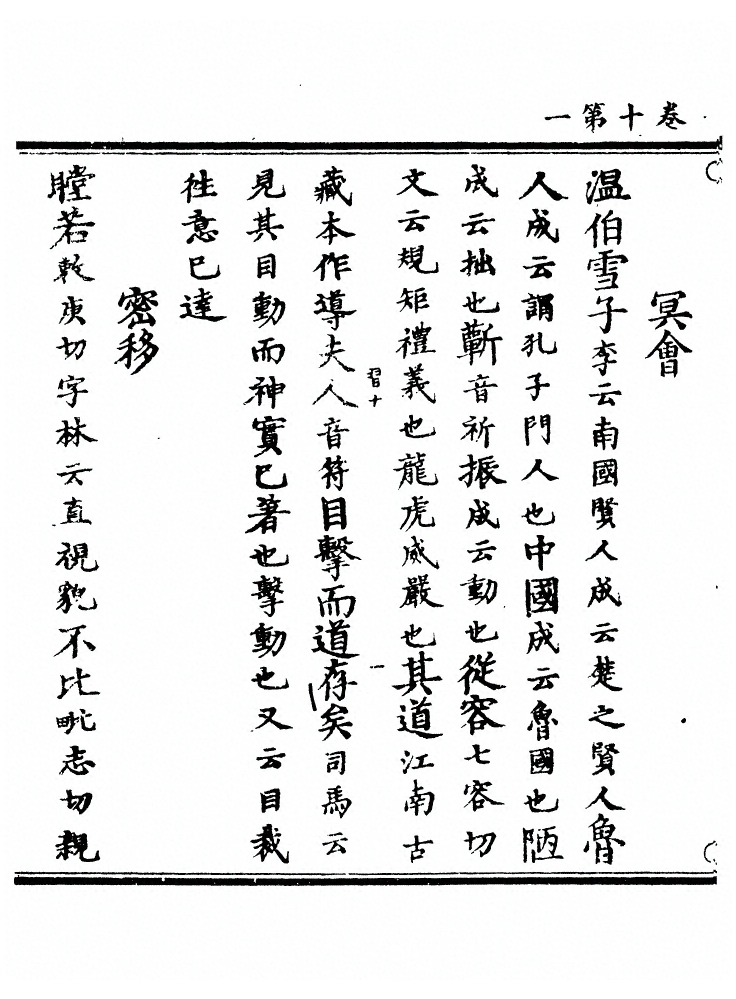 卷十第一
冥會
温伯雪子李云南國賢人成云楚之賢人魯
人成云謂孔子門人也中國成云魯國也陋
成云拙也蘄音祈振成云動也從容七容切
文云規矩禮義也龍虎威嚴也其道江南古
習十
藏本作導夫人音符目擊而道存矣司馬云
見其目動而神實已著也擊動也又云目裁
徃意已達
密移
瞠若敕庚切字林云直視貌不比毗志切親